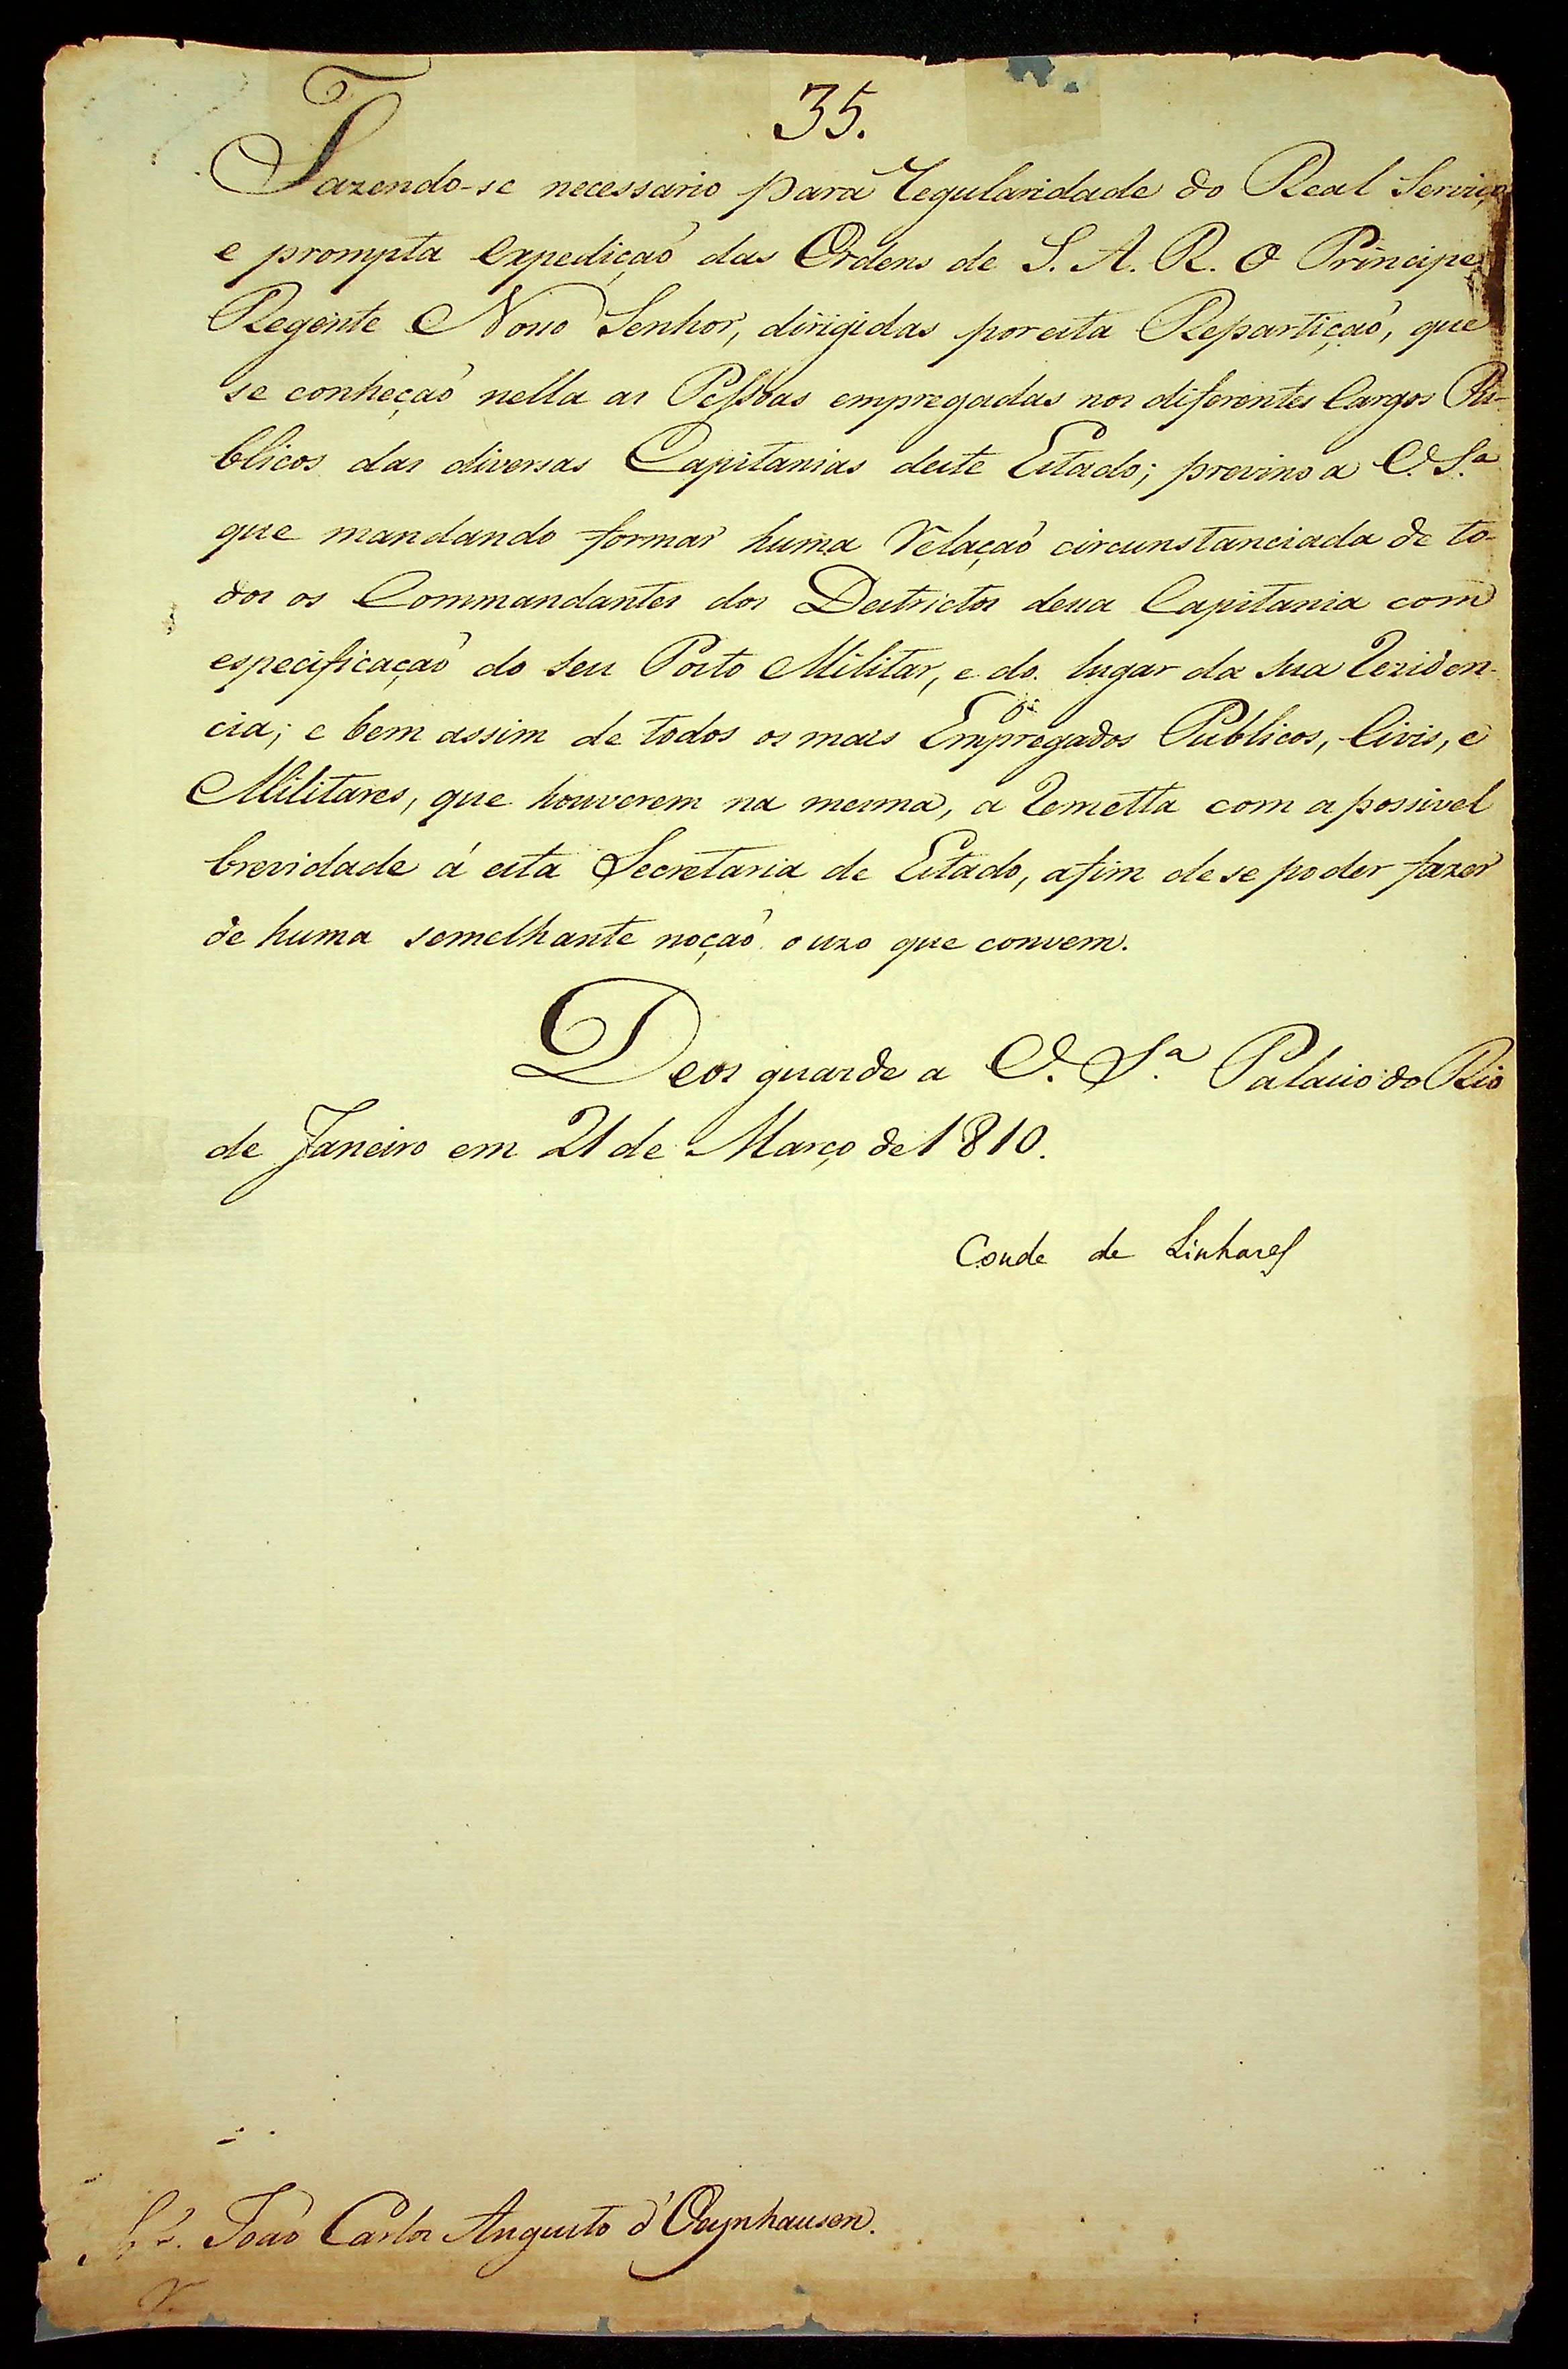 35.
Fazendo-se necessario para regularidade do Real Serviço
e prompta expediçaõ das Ordens de S. A. R. O Principe
Regente Nosso Senhor, dirigidas por esta Repartiçaõ, que
se conheçaõ nella as Pessoas empregadas nos diferentes Cargos Pu-
blicos das diversas Capitanias deste Estado; previno a V. S.ª
que mandando formar huma relaçaõ circunstanciada de to-
dos os Commandantes dos Destrictos dessa Capitania com
especificaçaõ do seu Posto Militar, e do lugar da sua reziden-
cia; e bem assim de todos os mais Empregados Publicos, Civis, e
Militares, que houverem na mesma, a remetta com a possivel
brevidade á esta Secretaria de Estado, afim de se poder fazer
de huma semelhante noçaõ o uzo que convem.
Deos guarde a V. S.ª Palacio do Rio
de Janeiro em 21 de Março de 1810.
Conde de Linhares
S.r João Carlos Augusto d'Oeynhausen.